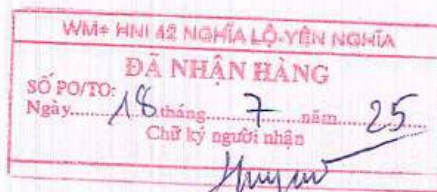 WM+ HNI 42 NGHĨA LỘ-YÊN NGHĨA
ĐÃ NHẬN HÀNG
SỐ PO/TO:
Ngày.....18.tháng.....7.....năm.....25.....
Chữ ký người nhận